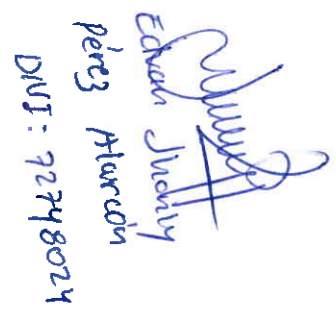 Edvan Jhonny
Pérez Alarcón
DNI: 72748024